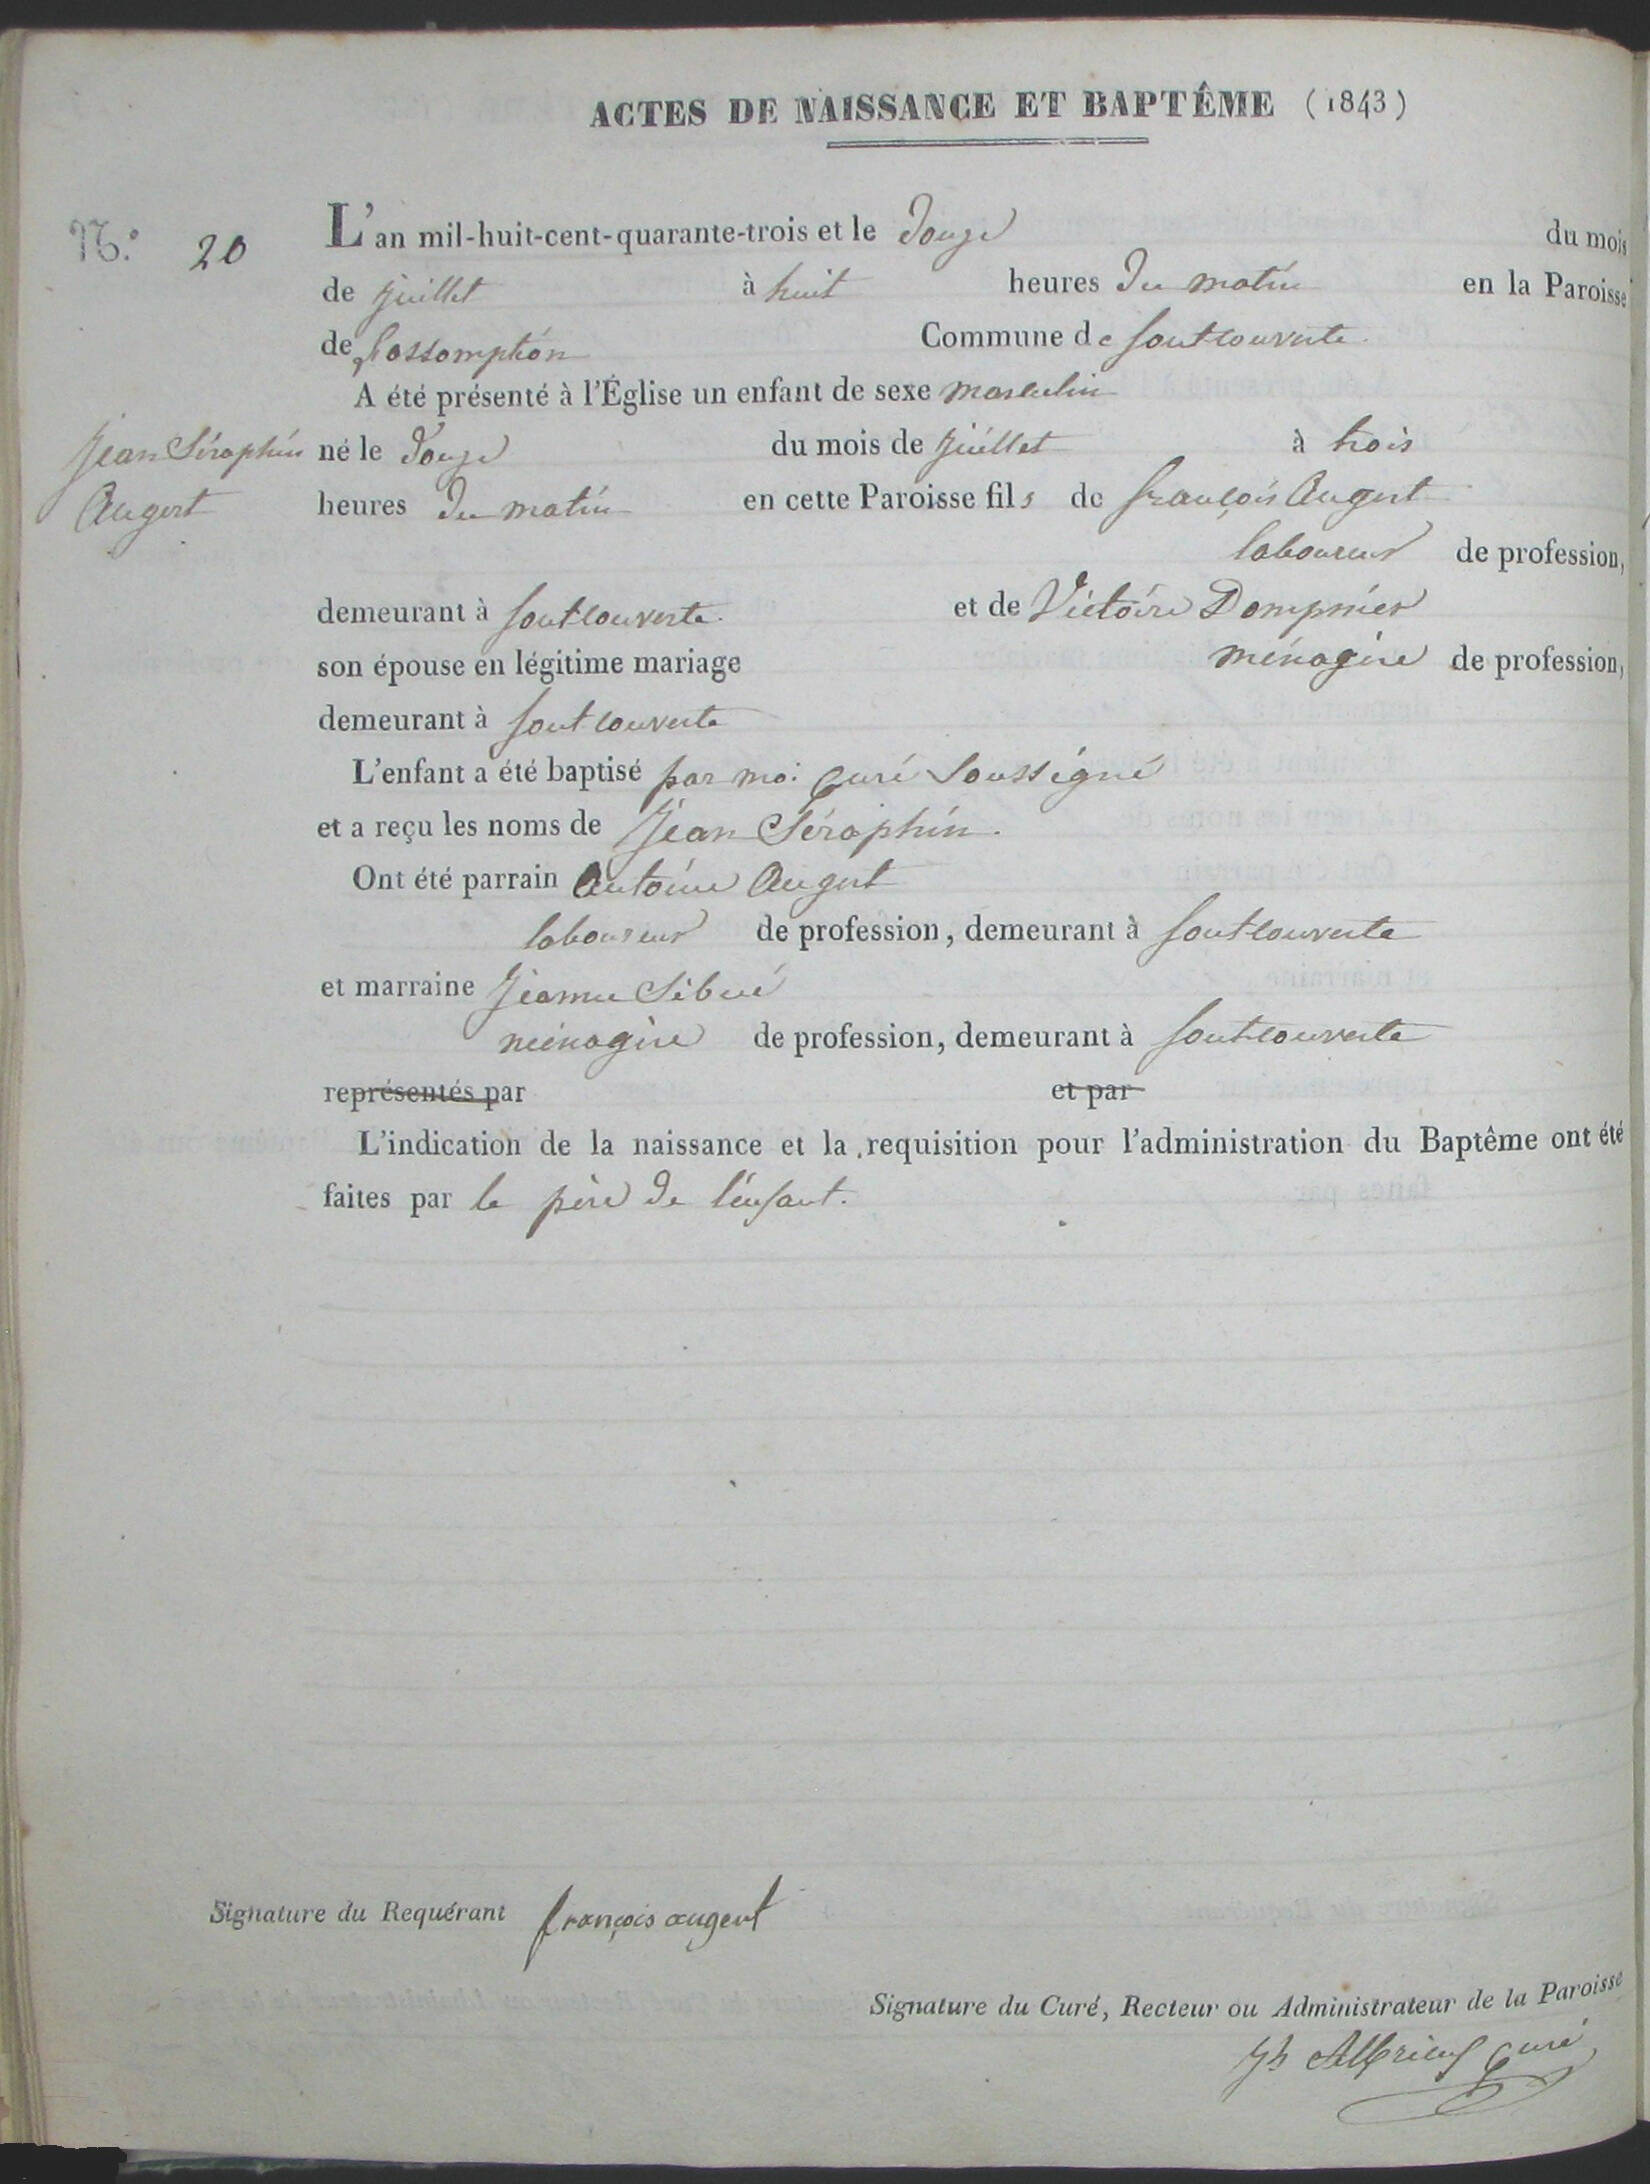 ACTES DE NAISSANCE ET BAPTÊME (1843)
N.º 20
L'an mil-huit-cent-quarante-trois et le douze du mois
de juillet à huit heures du matin en la Paroisse
de l'assomption Commune de fontcouverte
A été présenté à l'Église un enfant de sexe masculin
Jean Séraphin
Augert
né le douze du mois de juillet à trois
heures du matin en cette Paroisse fils de françois Augert
laboureur de profession,
demeurant à fontcouverte et de Victoire Dompnier
son épouse en légitime mariage ménagère de profession,
demeurant à fontcouverte
L'enfant a été baptisé par moi curé soussigné
et a reçu les noms de Jean Séraphin.
Ont été parrain Antoine Augert
laboureur de profession, demeurant à fontcouverte
et marraine Jeanne Sibué
ménagère de profession, demeurant à fontcouverte
représentés par et par
L'indication de la naissance et la requisition pour l'administration du Baptême ont été
faites par le père de l'enfant.
Signature du Requérant françois augert
Signature du Curé, Recteur ou Administrateur de la Paroisse
curé